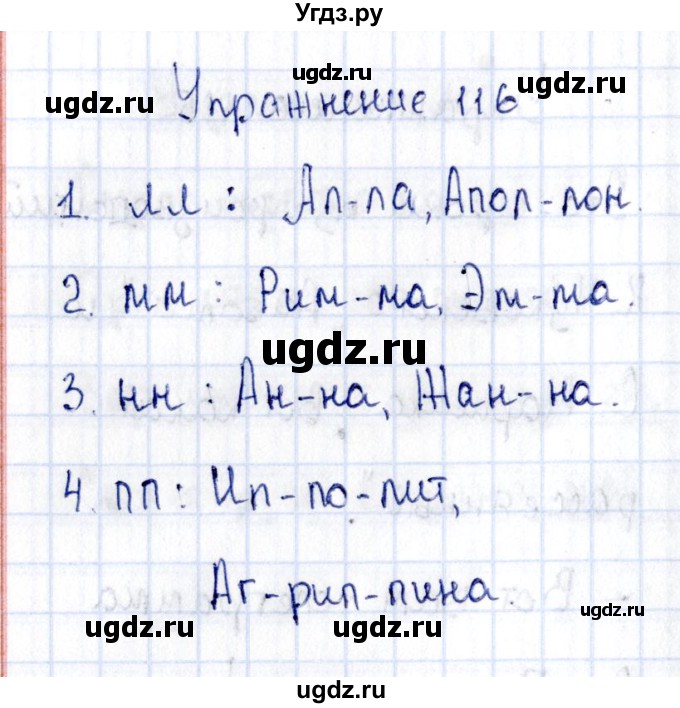 Угдз.ру
ugdz.ru
ugdz.ru
ugdz.ru
Упражнение 116
1. лл: Ал-ла, Апол-лон.
2. мм: Рим-ма, Эм-ма.
ugdz.ru
3. нн: Ан-на, Жан-на.
4. пп: Ип-по-лит,
Аг-рип-пина.
ugdz.ru
ugdz.ru
ugdz.ru
ugdz.ru